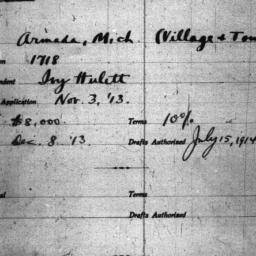 Armada, Mich. (Village & Town
1718
Ivy Hulett
Application Nov. 3, '13.
$8,000. Terms 10%
Dec. 8. '13. Drafts Authorized July 15, 1914
Terms
Drafts Authorized